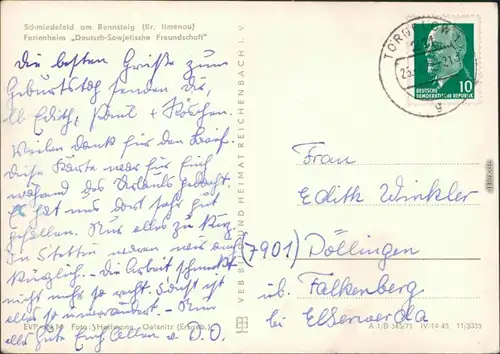 Schmiedefeld am Rennsteig (Kr. Ilmenau)
Ferienheim „Deutsch-Sowjetische Freundschaft"
Die besten Grüße zum
Geburtstag senden dir,
lb Edith, Paul + Röschen.
Vielen Dank für den Brief.
Diese Karte war für Euch
während des Urlaubs gedacht.
Es hat uns dort sehr gut
gefallen. Nur alles zu kurz.
In Stettin waren wir auch
kürzlich. - Die Arbeit schmeckt
nicht mehr so recht. Sonst ist
alles so unverändert. - Nun
alles gute Euch Allen
VEB BILD UND HEIMAT REICHENBACH i. V.
TORGELOW
DEUTSCHE
DEMOKRATISCHE REPUBLIK
10
Frau
Edith Winkler
(7901) Döllingen
üb. Falkenberg
bei Elsterwerda
Foto: Hoffmann, Oelsnitz (Erzgeb.)
A 1/B 345/71 IV-14-45 11/5035